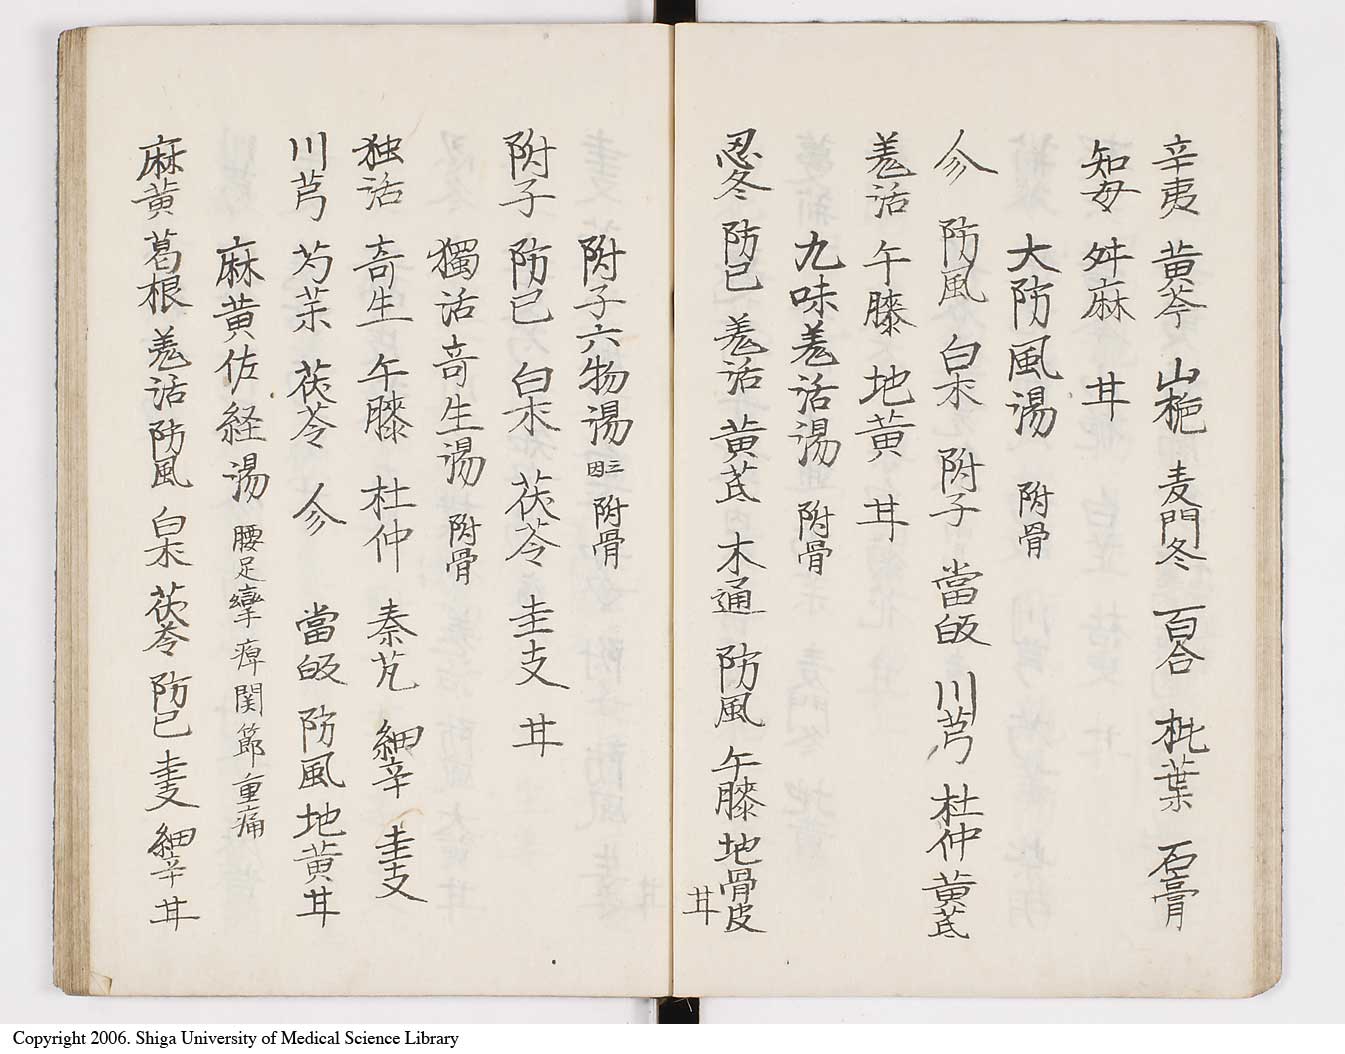 辛夷 黄芩 山梔 麦門冬 百合 枇葉 石膏
知母 舛麻 甘
大防風湯 附骨
参 防風 白朮 附子 當皈 川芎 杜仲 黄芪
羗活 牛膝 地黄 甘
九味羗活湯 附骨
忍冬 防己 羗活 黄芪 木通 防風 牛膝 地骨皮 甘
附子六物湯 三因 附骨
附子 防己 白朮 茯苓 圭支 甘
獨活寄生湯 附骨
独活 寄生 牛膝 杜仲 秦艽 細辛 圭支
川芎 芍茱 茯苓 参 當皈 防風 地黄 甘
麻黄佐経湯 腰足攣痺関節重痛
麻黄 葛根 羗活 防風 白朮 茯苓 防己 圭支 細辛 甘
Copyright 2006. Shiga University of Medical Science Library